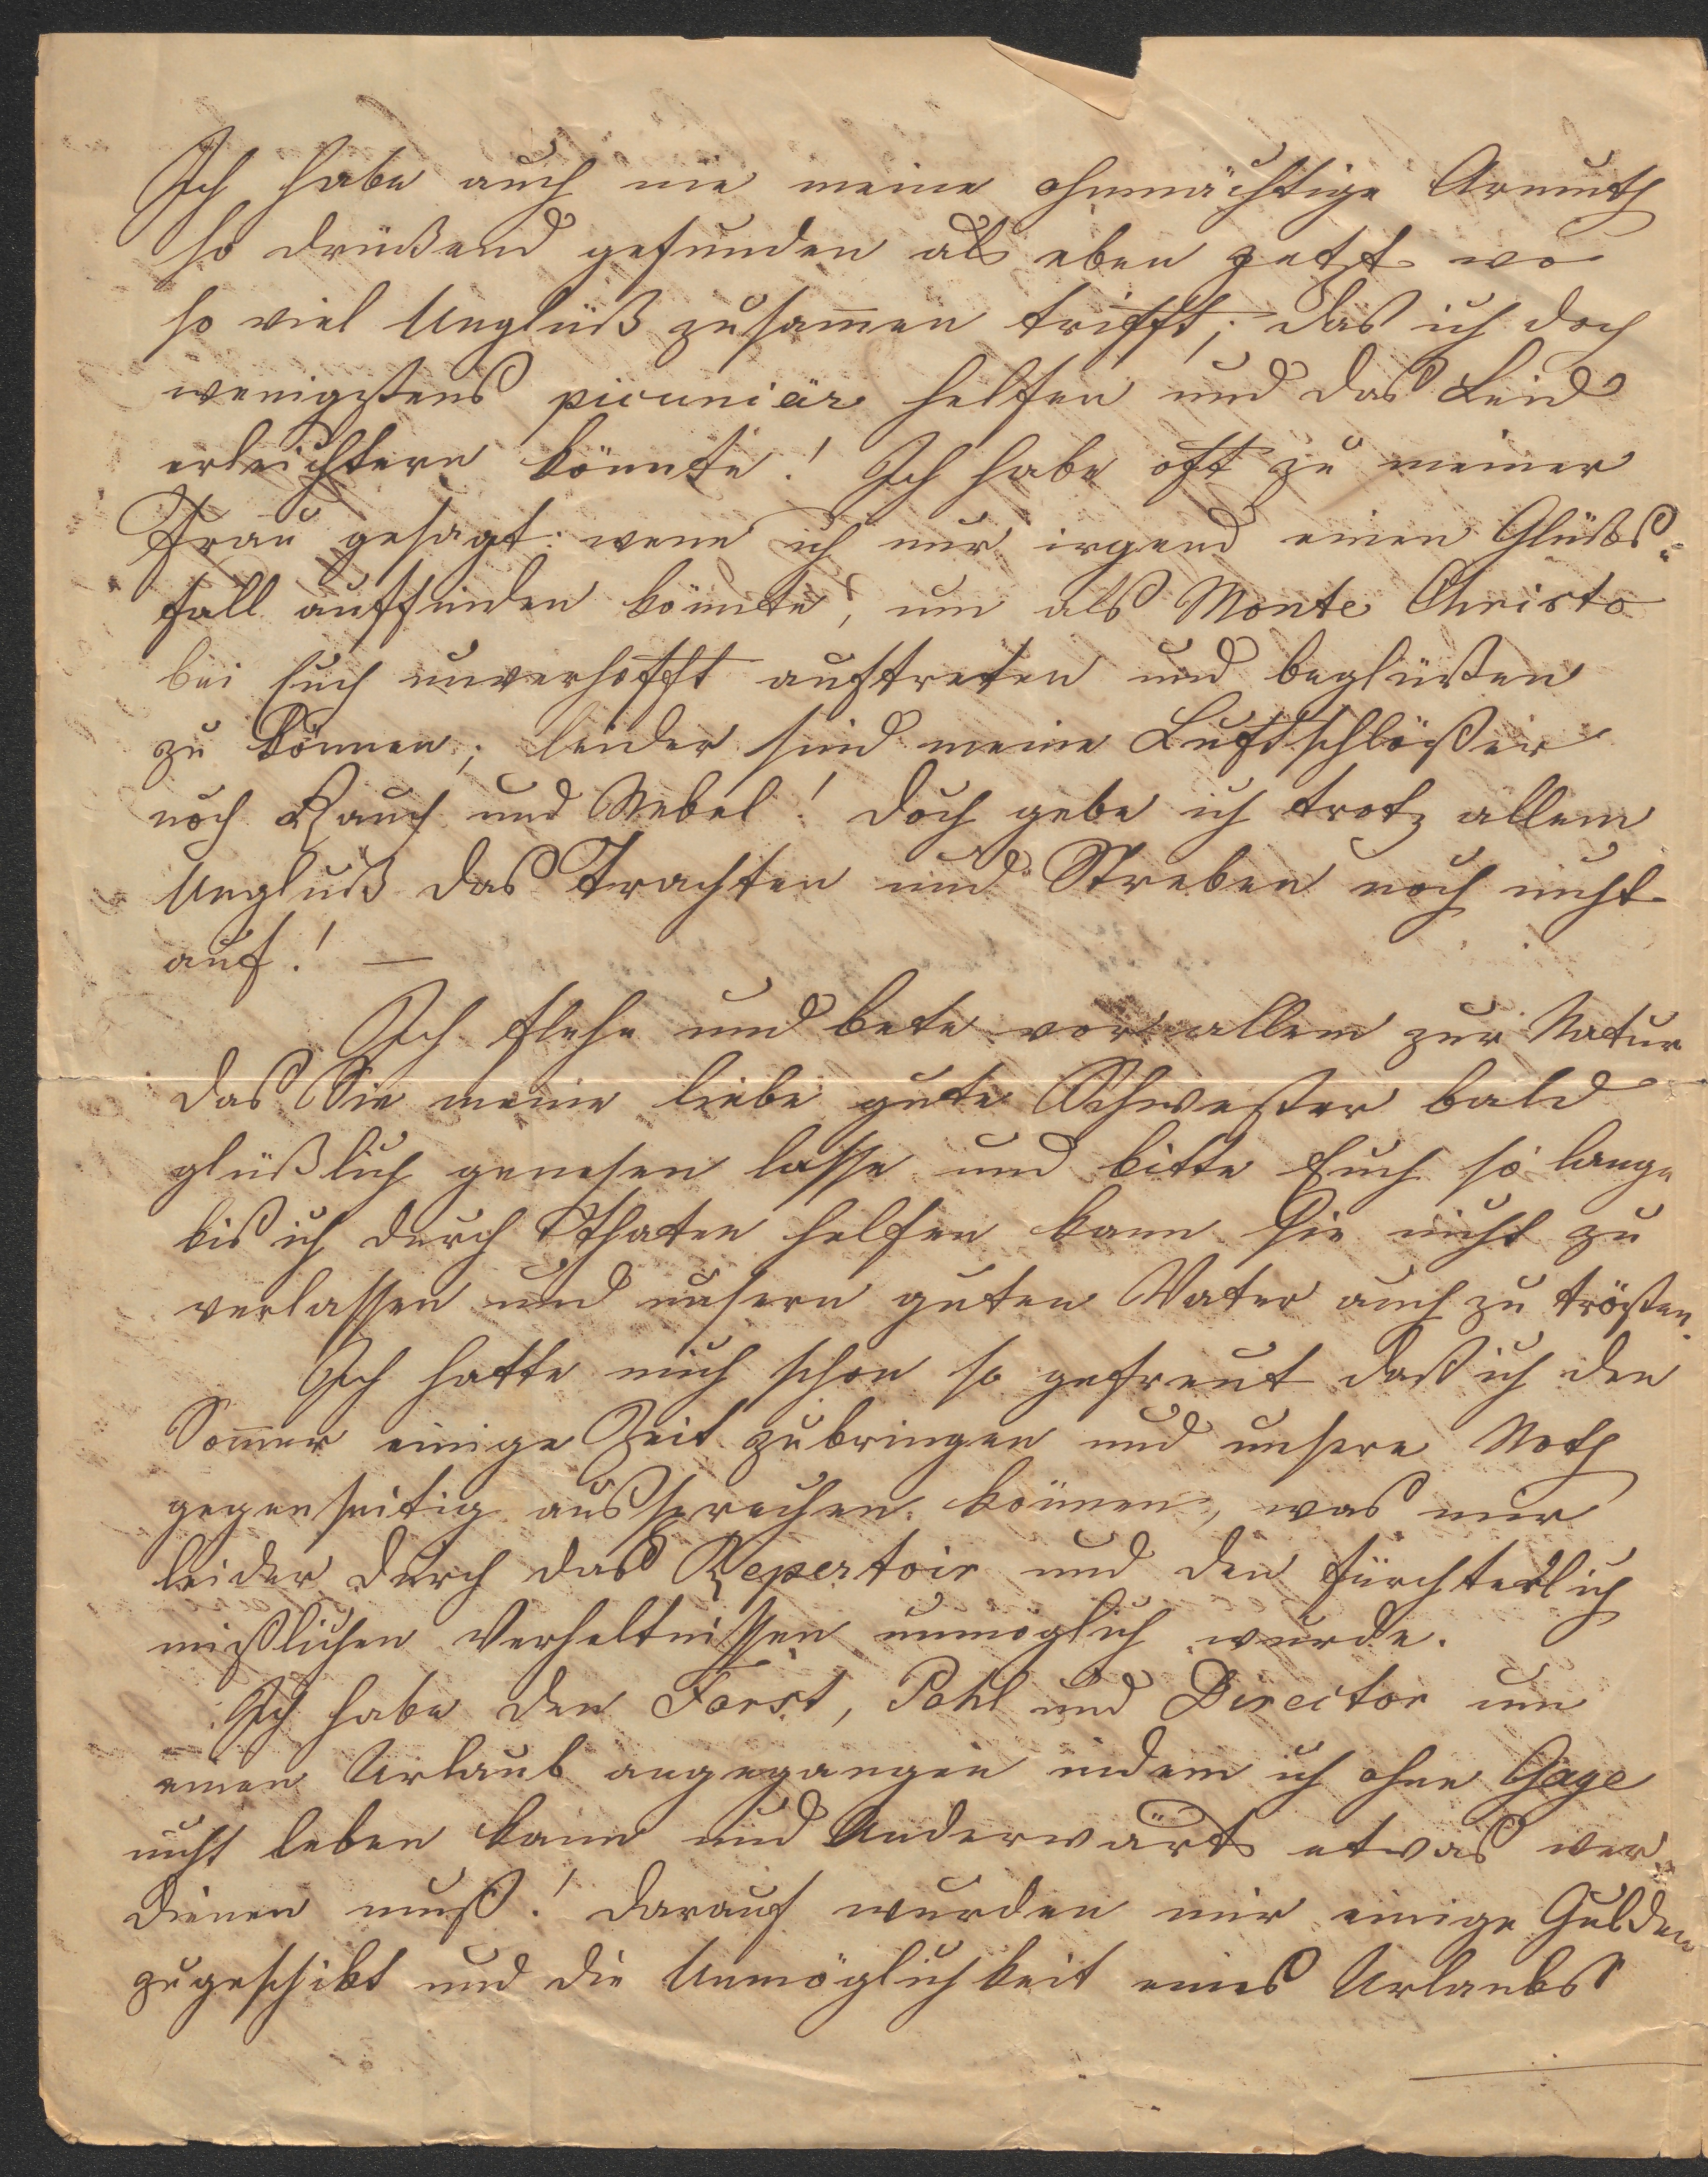 Ich habe auch nie meine ohnmächtige Armuth
so drükend gefunden als eben jetzt wo
so viel Unglük zusam̄en trifft; das ich doch
wenigstens picuniär helfen und das Leid
erleichtern könnte! Ich habe oft zu meiner
Frau gesagt: wenn ich nur irgend einen Glüks-
fall auffinden könnte, um als Monte Christo
bei Euch unverhofft auftreten und beglüken
zu können; leider sind meine Luftschlößer
noch Rauch und Nebel! Doch gebe ich trotz allem
Unglük das Trachten und Streben noch nicht
auf! —
Ich flehe und bete vor allem zur Natur
das Sie meine liebe gute Schwester bald
glüklich genesen lasse und bitte Euch so lange
bis ich durch Thaten helfen kann sie nicht zu
verlassen und unsern guten Vater auch zu trösten.
Ich hatte mich schon so gefreut daß ich den
Som̄er einige Zeit zubringen und unsere Noth
gegenseitig aussprechen können, was mir
leider durch das Repertoir und den fürchterlich
mißlichen Verheltnissen unmöglich wurde.
Ich habe den Forst, Pohl und Director um
einen Urlaub angegangen indem ich ohne Gage
nicht leben kann und Anderwärts etwas ver-
dienen muß! Darauf wurden mir einige Gulden
zugeschikt und die Unmöglichkeit eines Urlaubs